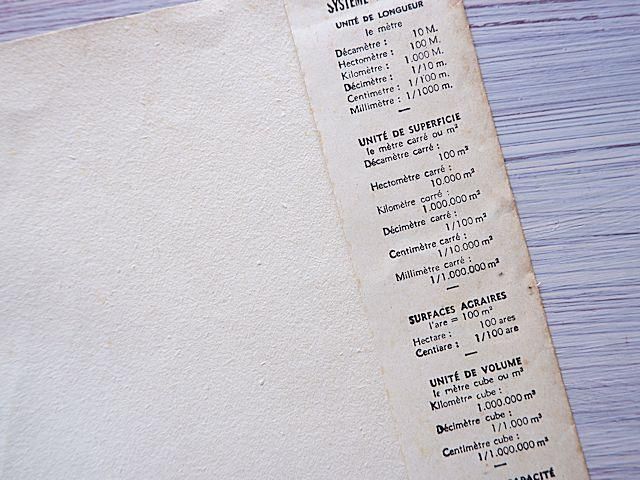 SYSTÈME
UNITÉ DE LONGUEUR
le mètre
Décamètre : 10 M.
Hectomètre : 100 M.
Kilomètre : 1.000 M.
Décimètre : 1/10 m.
Centimètre : 1/100 m.
Millimètre : 1/1000 m.
UNITÉ DE SUPERFICIE
le mètre carré ou m²
Décamètre carré :
100 m²
Hectomètre carré :
10.000 m²
Kilomètre carré :
1.000.000 m²
Décimètre carré :
1/100 m²
Centimètre carré :
1/10.000 m²
Millimètre carré :
1/1.000.000 m²
SURFACES AGRAIRES
l'are = 100 m²
Hectare : 100 ares
Centiare : 1/100 are
UNITÉ DE VOLUME
le mètre cube ou m³
Kilomètre cube :
1.000.000 m³
Décimètre cube :
1/1.000 m³
Centimètre cube :
1/1.000.000 m³
CAPACITÉ